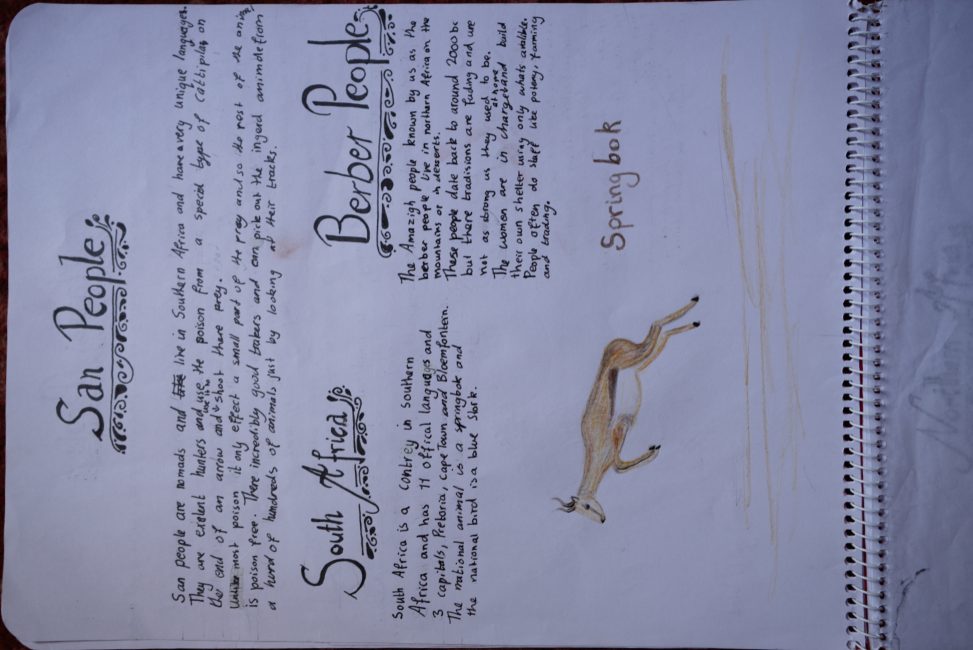 San People
San people are nomads and live in Southern Africa and have a very unique languages.
They are exelent hunters and use the poison from a special type of catipilar on
the end of an arrow and use it to shoot there prey.
Unlike most poison it only effect a small part of the prey and so the rest of the anime
is poison free. There incredibly good trakers and can pick out the ingerd animale from
a hurd of hundreds of animals just by looking at their tracks.
South Africa
South Africa is a contrey in Southern
Africa and has 11 offical languags and
3 capitals, Pretoria, Cape Town and Bloemfontein.
The national animal is a springbok and
the national bird is a blue stork.
Berber People
The Amazigh people known by us as the
berber people live in northern Africa on the
mountains or in desserts.
These people date back to around 2000 bc
but there tradisions are fading and are
not as strong us they used to be.
The women are in charge at home and build
their own shelter using only whats avalible.
People often do staff like potery, farming
and trading.
Springbok